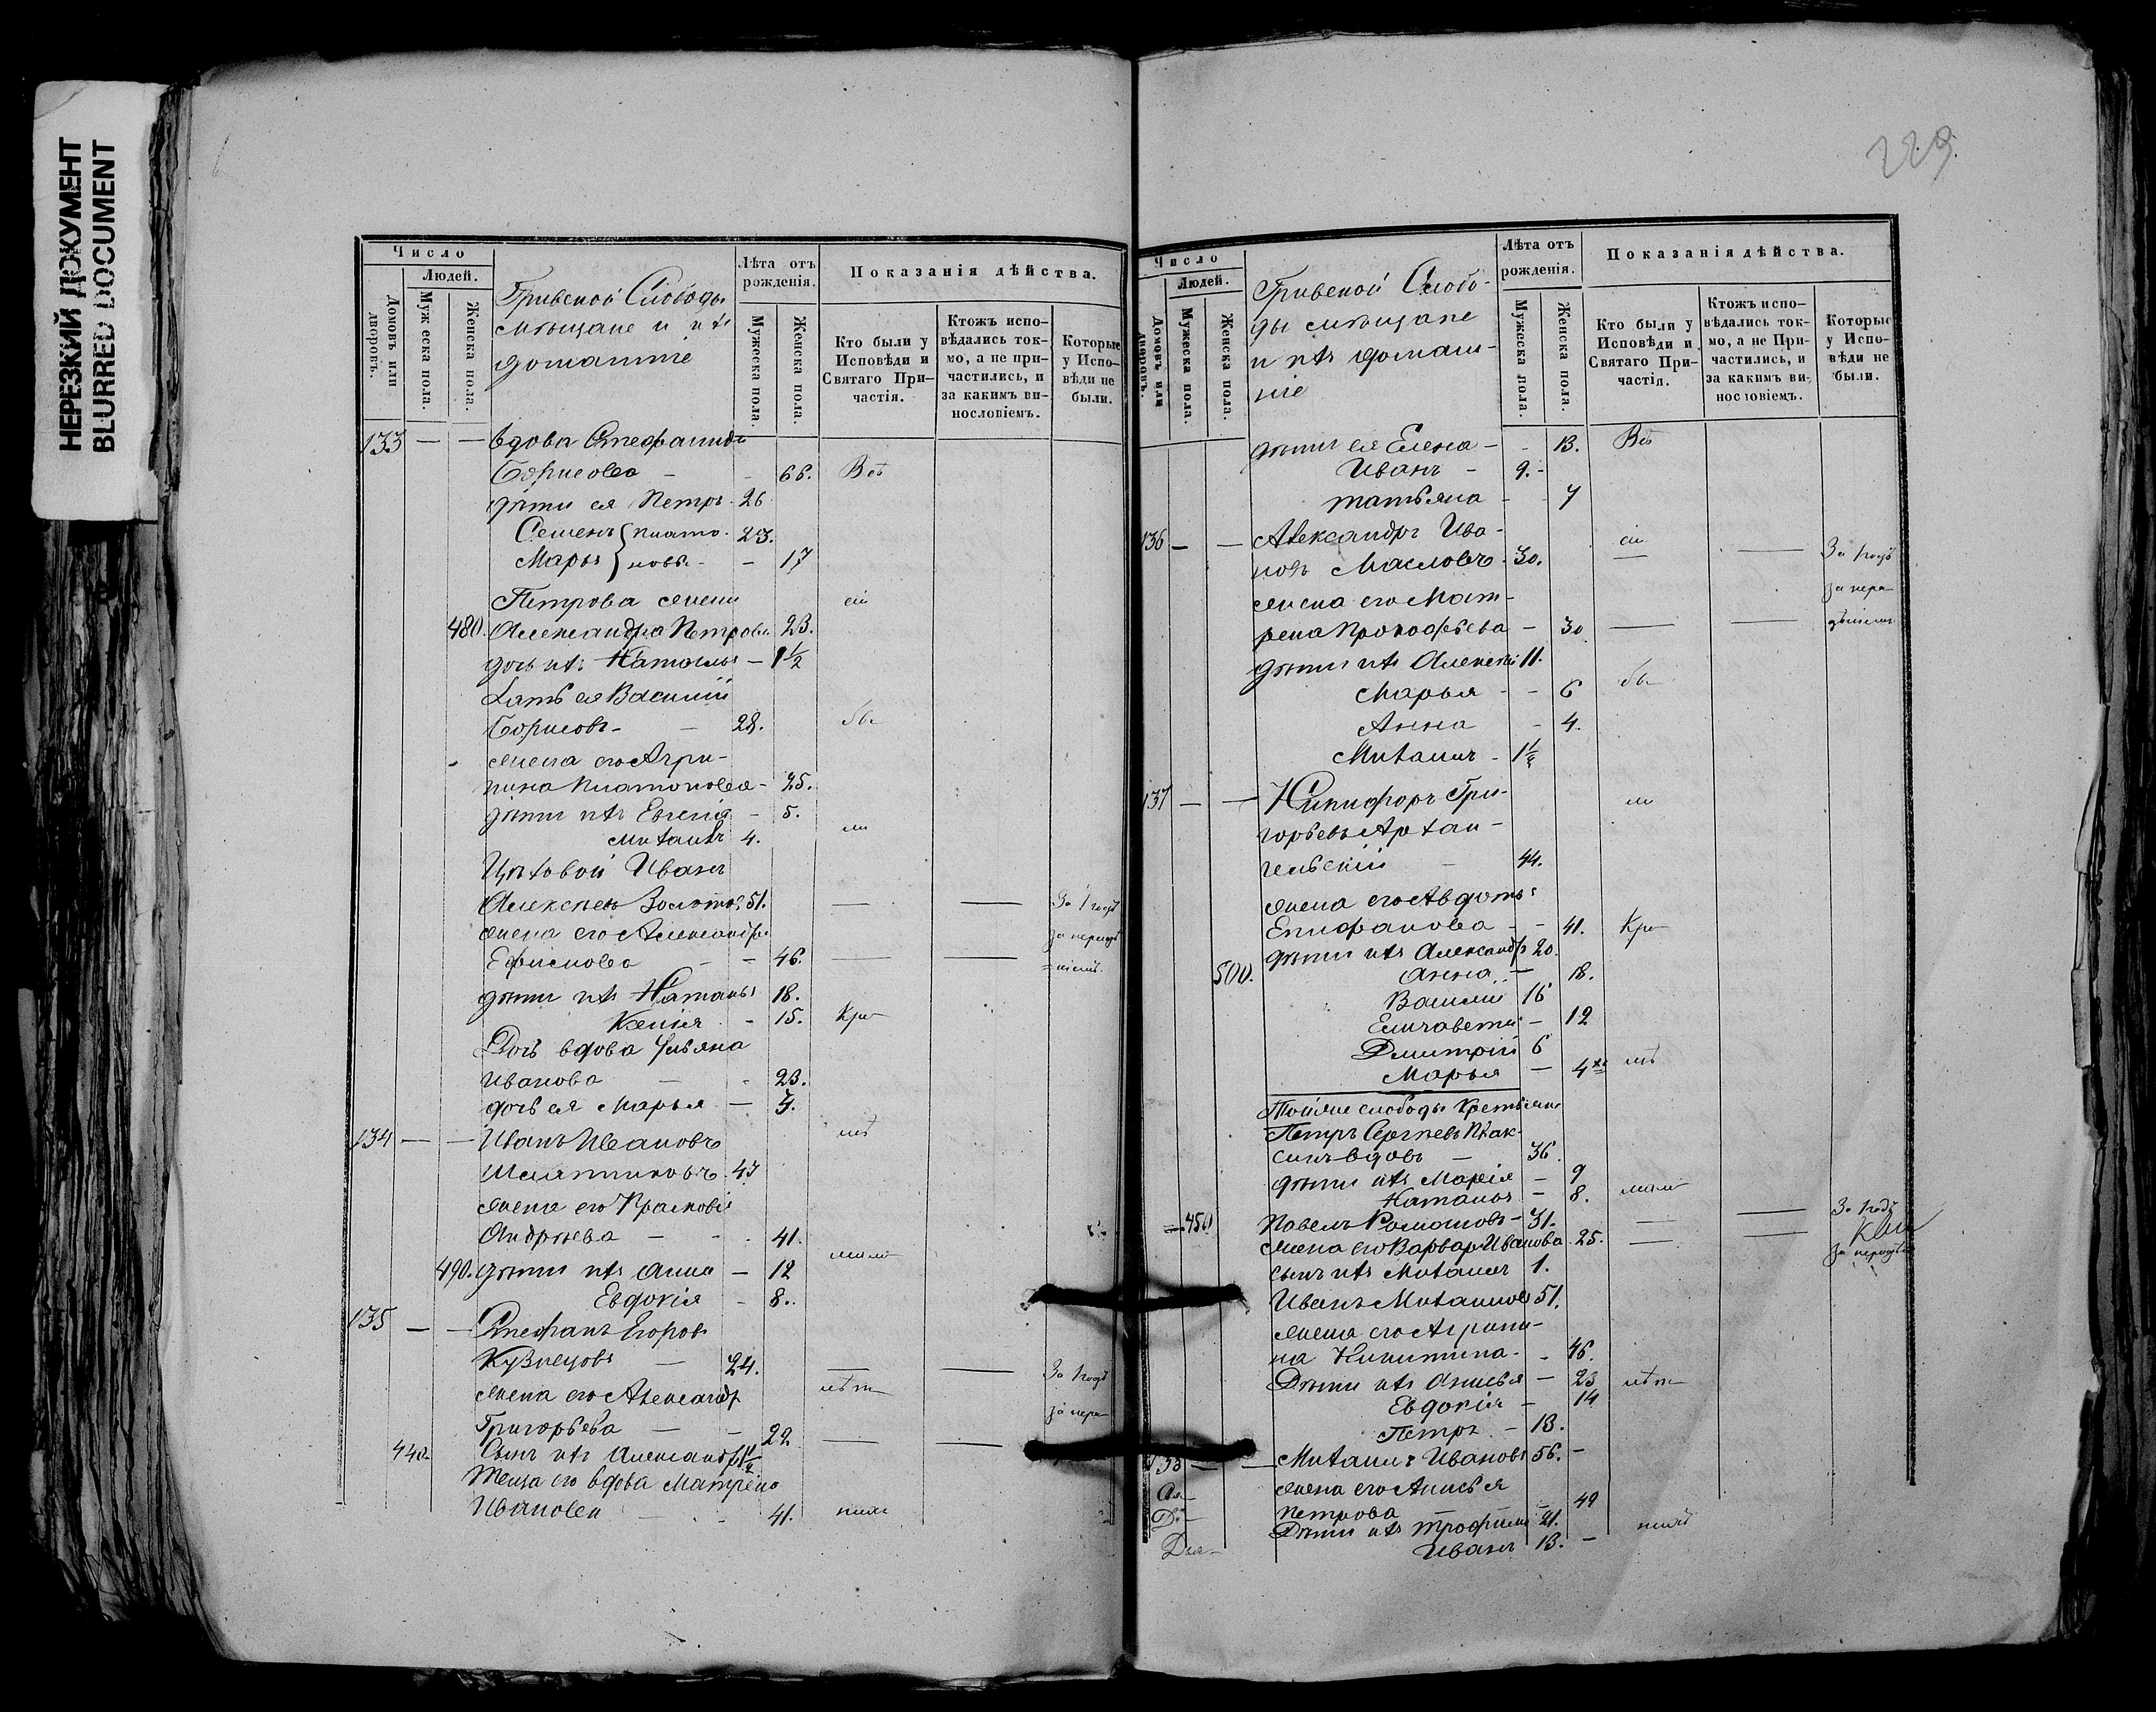 НЕРЕЗКИЙ ДОКУМЕНТ
BLURRED DOCUMENT
Число
Людей.
Домовъ или дворовъ.
Мужеска пола.
Женска пола.
Гривской Слободы
мѣщане и ихъ
домашніе
Лѣта отъ рожденія.
Мужеска пола.
Женска пола.
Показанія дѣйства.
Кто были у Исповѣди и Святаго При-
частія.
Ктожъ испо-
вѣдались ток-
мо, а не при-
частились, и
за какимъ ви-
нословіемъ.
Которые
у Испо-
вѣди не
были.
133 — — вдова Стефанида
Борисова - - 66. Всѣ
дѣти ея Петръ - 26
Семенъ Плато- 23.
Марья новы - - 17
Петрова жена сіи
480. Александра Петрова 23.
дочь ихъ Наталья - 1½
Зять ея Василій
Борисовъ - - 28. бы
жена его Агри-
пина Платонова - 25.
дѣти ихъ Евгенія - 5.
Михаилъ 4. ли
Цѣховой Иванъ
Алексѣевъ Золотов 51. — — За 1 годъ
жена его Александра за нерадѣ
Ефимова - - 46. — — =ніемъ.
дѣти ихъ Наталья 18.
Ксенія - 15. Кро
Дочь вдова Ульяна
Иванова — - 23.
дочь ея Марья — 5.
134 — — Иванъ Ивановъ мѣ
47
жена его Прасковія
Андреева — - - 41.
490. дѣти ихъ Анна — 12 мало
Евдокія - 8.
135 — — Стефанъ Егоровъ
Кузнецовъ — 24. — — За 1 годъ
жена его Александр лѣт за нера
Григорьева — - 22 — —
440. Сынъ ихъ Александръ 1½
Теща его вдова Матрена
Иванова — - - 41. нихъ
229.
Число
Людей.
Домовъ или дворовъ.
Мужеска пола.
Женска пола.
Гривской Слобо-
ды мѣщане
и ихъ домаш-
ніе
Лѣта отъ
рожденія.
Мужеска пола.
Женска пола.
Показанія дѣйства.
Кто были у
Исповѣди и
Святаго При-
частія.
Ктожъ испо-
вѣдались ток-
мо, а не При-
частились, и
за какимъ ви-
нословіемъ.
Которые
у Испо-
вѣди не
были.
дѣти ея Елена - - 13. Всѣ
Иванъ - 9. -
татьяна - - 7
136 — — Александръ Ива- сіи
новъ Масловъ - 30. — — За 1 годъ
жена его Мат- за нера
рена Прокофьева - 30 — — дѣніемъ
дѣти ихъ Алексѣй 11.
Марья - - 6 бы
Анна - 4.
Михаилъ - 1½
137 — — Никифоръ Гри- ли
горьевъ Архан-
гельскій - 44.
жена его Авдотья
Епифанова - - 41. Кро
дѣти ихъ Александръ 20.
500. Анна - 18.
Василій 16
Елизавета - 12
Дмитрій 6
Марья - 4хъ мѣ
Тойже слободы Крестьяне
Петръ Сергѣевъ
вдовъ — 36.
дѣти ихъ Марія - 9
Наталья - 8. мало
450 Павелъ Романовъ - 31. — — За 1 годъ
жена его Варвар Иванова 25. — — за нерадѣ
сынъ ихъ Михаилъ 1.
Иванъ Михаилов 51.
жена его Агрипи-
на Никитина - - 46.
Дѣти ихъ Анисья - 23 лѣт
Евдокія - 14
Петръ - 13.
138 — — Михаилъ Ивановъ 56. -
жена его Анисья
Петрова — - 49
Дѣти ихъ Трофимъ 21. нихъ
Иванъ 13. -